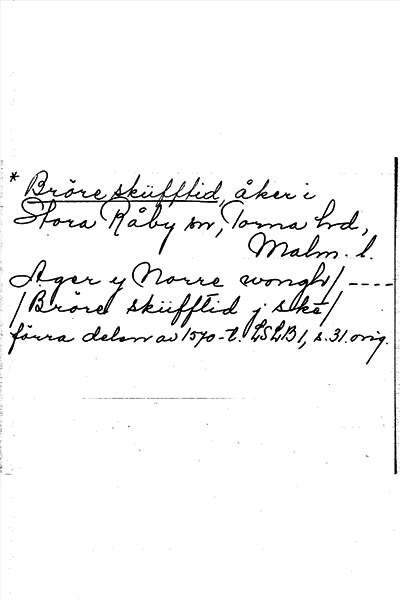 * Bröre skiifftid, åker i
Stora Råby sn, Torna hd,
Malm. l.
Ager y Norre wongh/ ----
/Bröre skiifftid j skē/
förra delen av 1570-t. LSLB1, s. 31. orig.